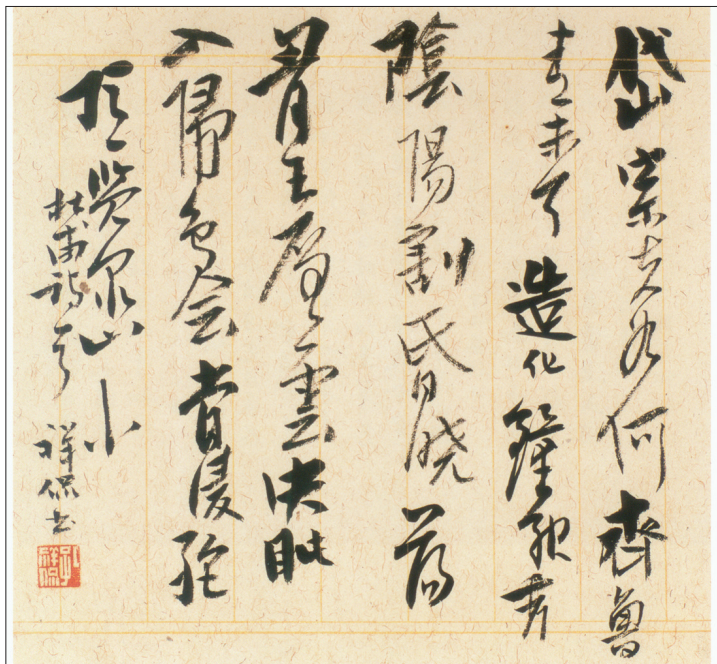 岱宗夫如何齊魯
青未了造化鍾神秀
陰陽割昏晓蕩
胷生層雲決眥
入歸鳥会當凌絕
頂一覽眾山小
杜甫詩 祥侃書